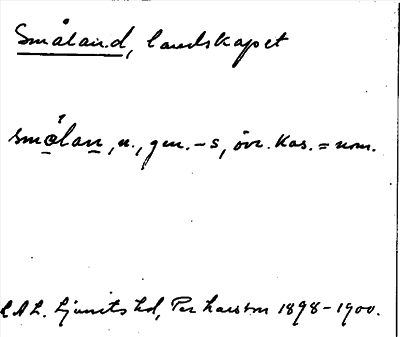 Småland, landskapet
småla̱ṉ, n., gen. -s, övr. kas. = nom.
L.A.L. Ljunits hd, Per Larsson 1898-1900.